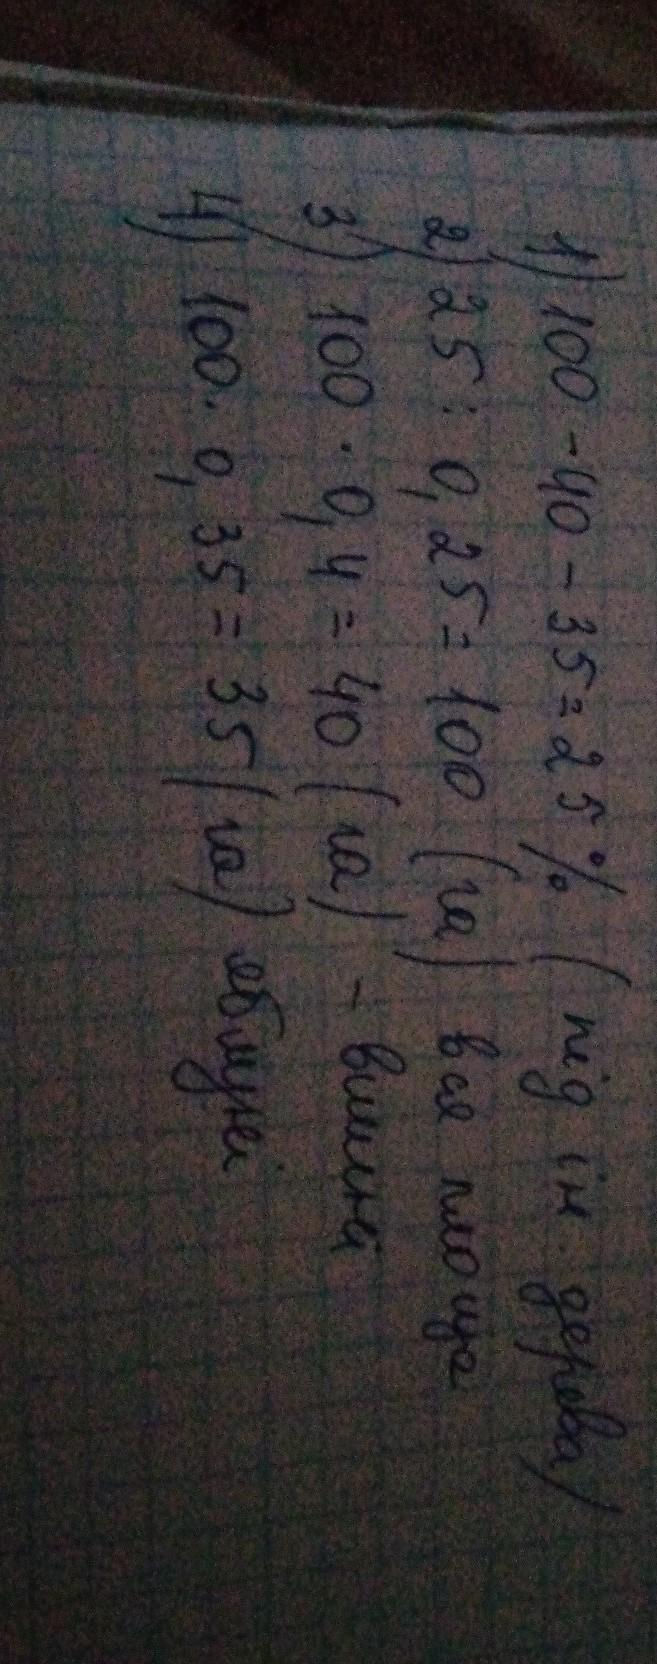 1) 100 - 40 - 35 = 25 % ( під ін. дерева)
2) 25 : 0,25 = 100 (га) вся площа
3) 100 · 0,4 = 40 (га) - вишні
4) 100 · 0,35 = 35 (га) яблуні